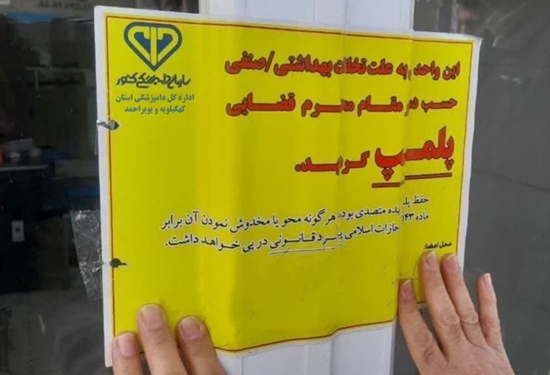 سازمان دامپزشکی کشور
اداره کل دامپزشکی استان
کهگیلویه و بویراحمد
این واحد به علت تخلف بهداشتی/صنفی
حسب دستور مقام محترم قضایی
پلمپ گردید.
حفظ پلمپ به عهده متصدی بوده هرگونه محو یا مخدوش نمودن آن برابر
ماده ۵۴۳ مجازات اسلامی پیگرد قانونی در پی خواهد داشت.
محل امضاء: